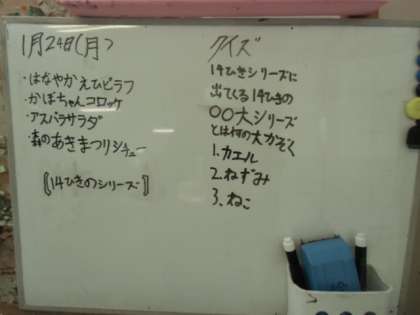 1月24日(月)
・はなやかえびピラフ
・かぼちゃんコロッケ
・アスパラサラダ
・森のあきまつりシチュー
〘14ひきのシリーズ〙
クイズ
14ひきシリーズに
出てくる14ひきの
〇〇大シリーズ
とは何の大かぞく
1.カエル
2.ねずみ
3.ねこ